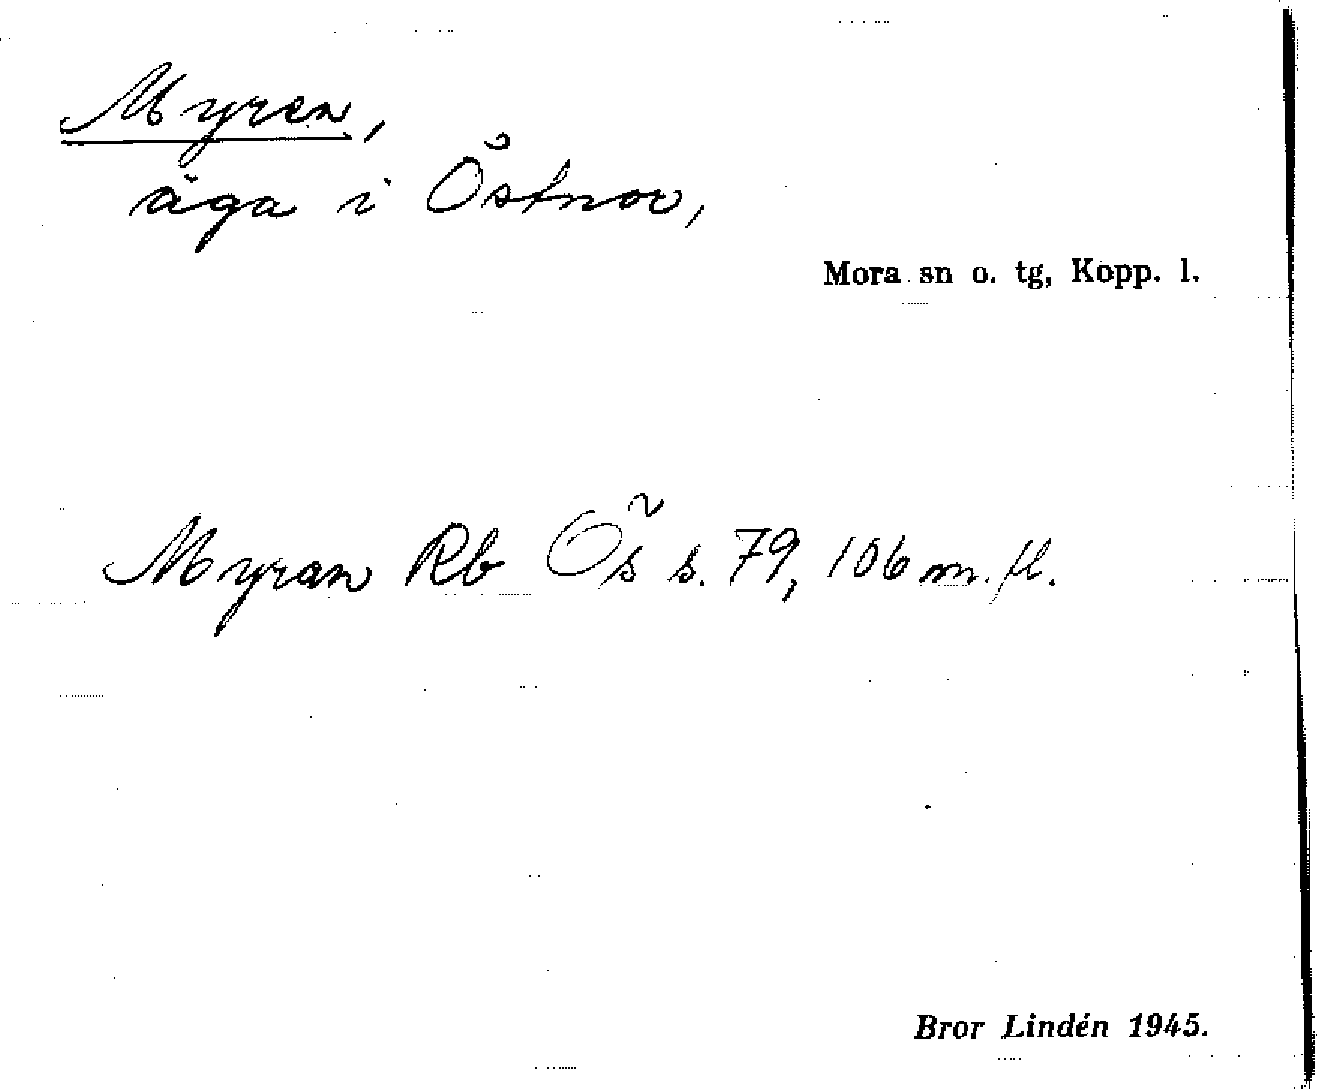 Myren,
äga i Östnor,
Mora sn o. tg, Kopp. l.
Myran Rb Ös s. 79, 106 m. fl.
Bror Lindén 1945.